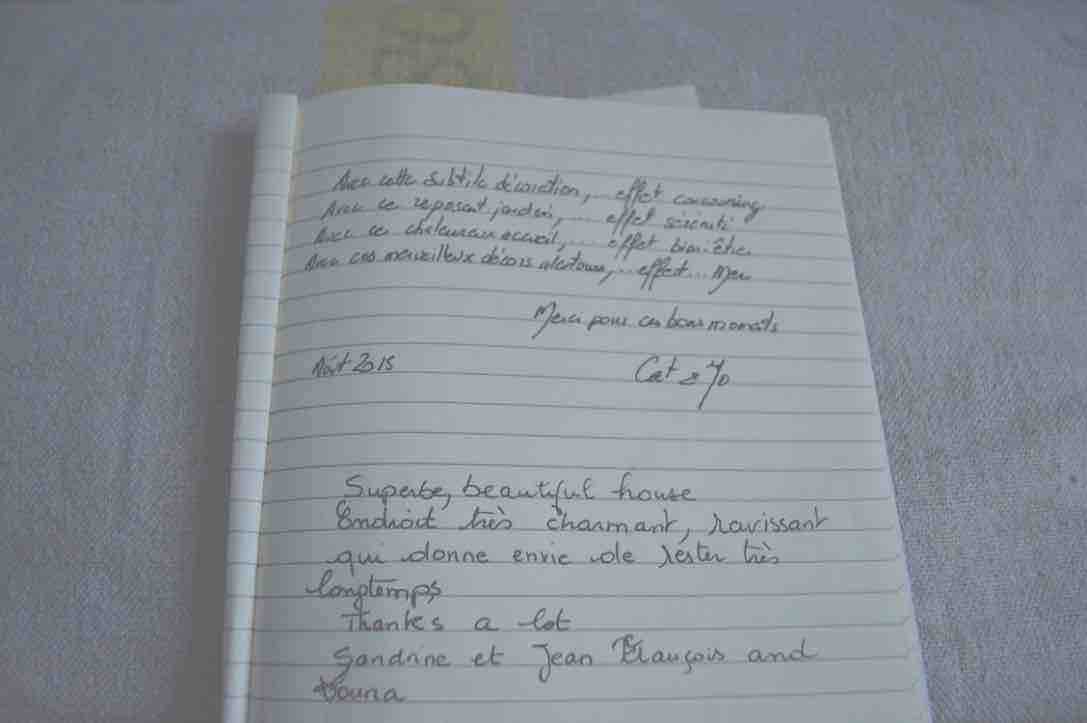 Avec cette subtile décoration, ... effet cocooning
Avec ce reposant jardin, ... effet sérénité
Avec ce chaleureux accueil, ... effet bien-être
Avec ces merveilleux décors alentours, ... effet ... Mer
Merci pour ces bons moments
Août 2015
Cat &
Superbe, beautiful house
Endroit très charmant, ravissant
qui donne envie de rester très
longtemps
Thanks a lot
Sandrine et Jean François and